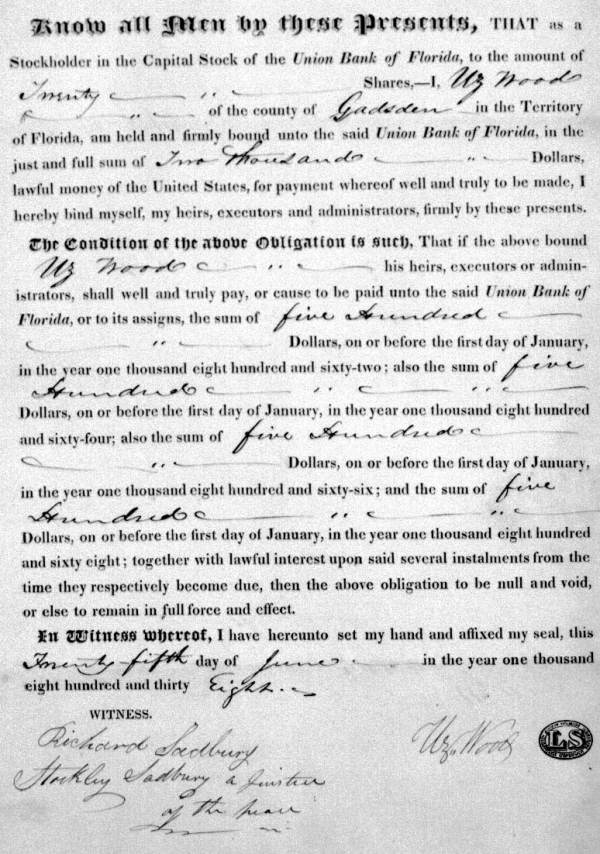 Know all Men by these Presents, THAT as a
Stockholder in the Capital Stock of the Union Bank of Florida, to the amount of
Twenty " Shares,—I, Uz Wood
" of the county of Gadsden in the Territory
of Florida, am held and firmly bound unto the said Union Bank of Florida, in the
just and full sum of Two thousand " Dollars,
lawful money of the United States, for payment whereof well and truly to be made, I
hereby bind myself, my heirs, executors and administrators, firmly by these presents.
The Condition of the above Obligation is such, That if the above bound
Uz Wood " his heirs, executors or admin-
istrators, shall well and truly pay, or cause to be paid unto the said Union Bank of
Florida, or to its assigns, the sum of five Hundred
" Dollars, on or before the first day of January,
in the year one thousand eight hundred and sixty-two; also the sum of five
Hundred " "
Dollars, on or before the first day of January, in the year one thousand eight hundred
and sixty-four; also the sum of five Hundred
" Dollars, on or before the first day of January,
in the year one thousand eight hundred and sixty-six; and the sum of five
Hundred " "
Dollars, on or before the first day of January, in the year one thousand eight hundred
and sixty eight; together with lawful interest upon said several instalments from the
time they respectively become due, then the above obligation to be null and void,
or else to remain in full force and effect.
In Witness whereof, I have hereunto set my hand and affixed my seal, this
Twenty fifth day of June in the year one thousand
eight hundred and thirty Eight
WITNESS.
Richard Sadbury
Uz. Wood LS
Stockley Sadbury a
of the peace